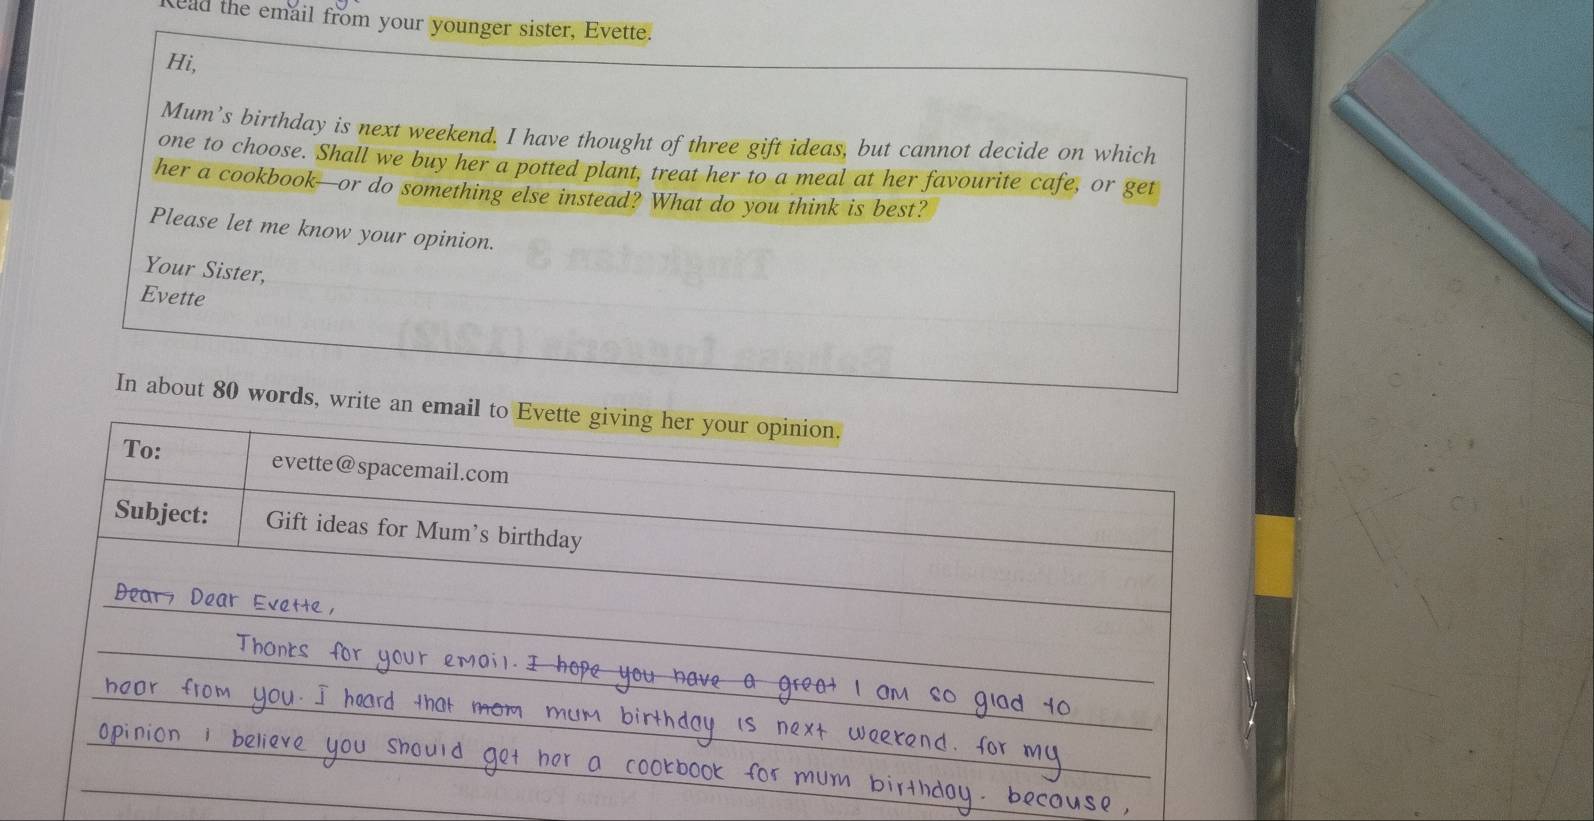 Read the email from your younger sister, Evette.
Hi,
Mum's birthday is next weekend. I have thought of three gift ideas, but cannot decide on which
one to choose. Shall we buy her a potted plant, treat her to a meal at her favourite cafe, or get
her a cookbook—or do something else instead? What do you think is best?
Please let me know your opinion.
Your Sister,
Evette
In about 80 words, write an email to Evette giving her your opinion.
To:
evette@spacemail.com
Subject:
Gift ideas for Mum's birthday
Dear, Dear Evette,
Thanks for your email. I hope you have a great I am so glad to
hear from you. I heard that mom mum birthday is next weekend. for my
opinion i believe you should get her a cookbook for mum birthday. because,